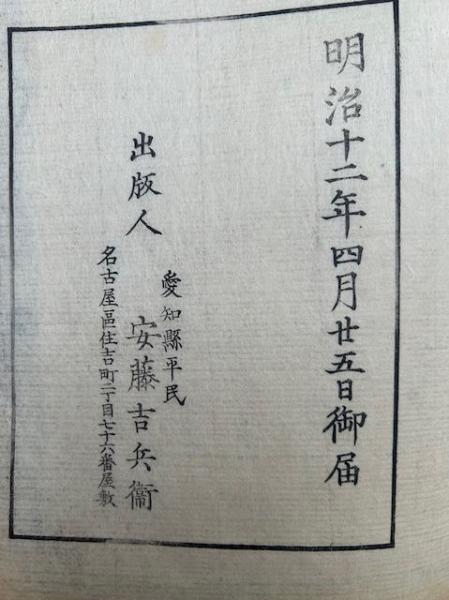 明治十二年四月廿五日御届
愛知縣平民
出版人　安藤吉兵衞
名古屋區住吉町二丁目七十六番屋敷